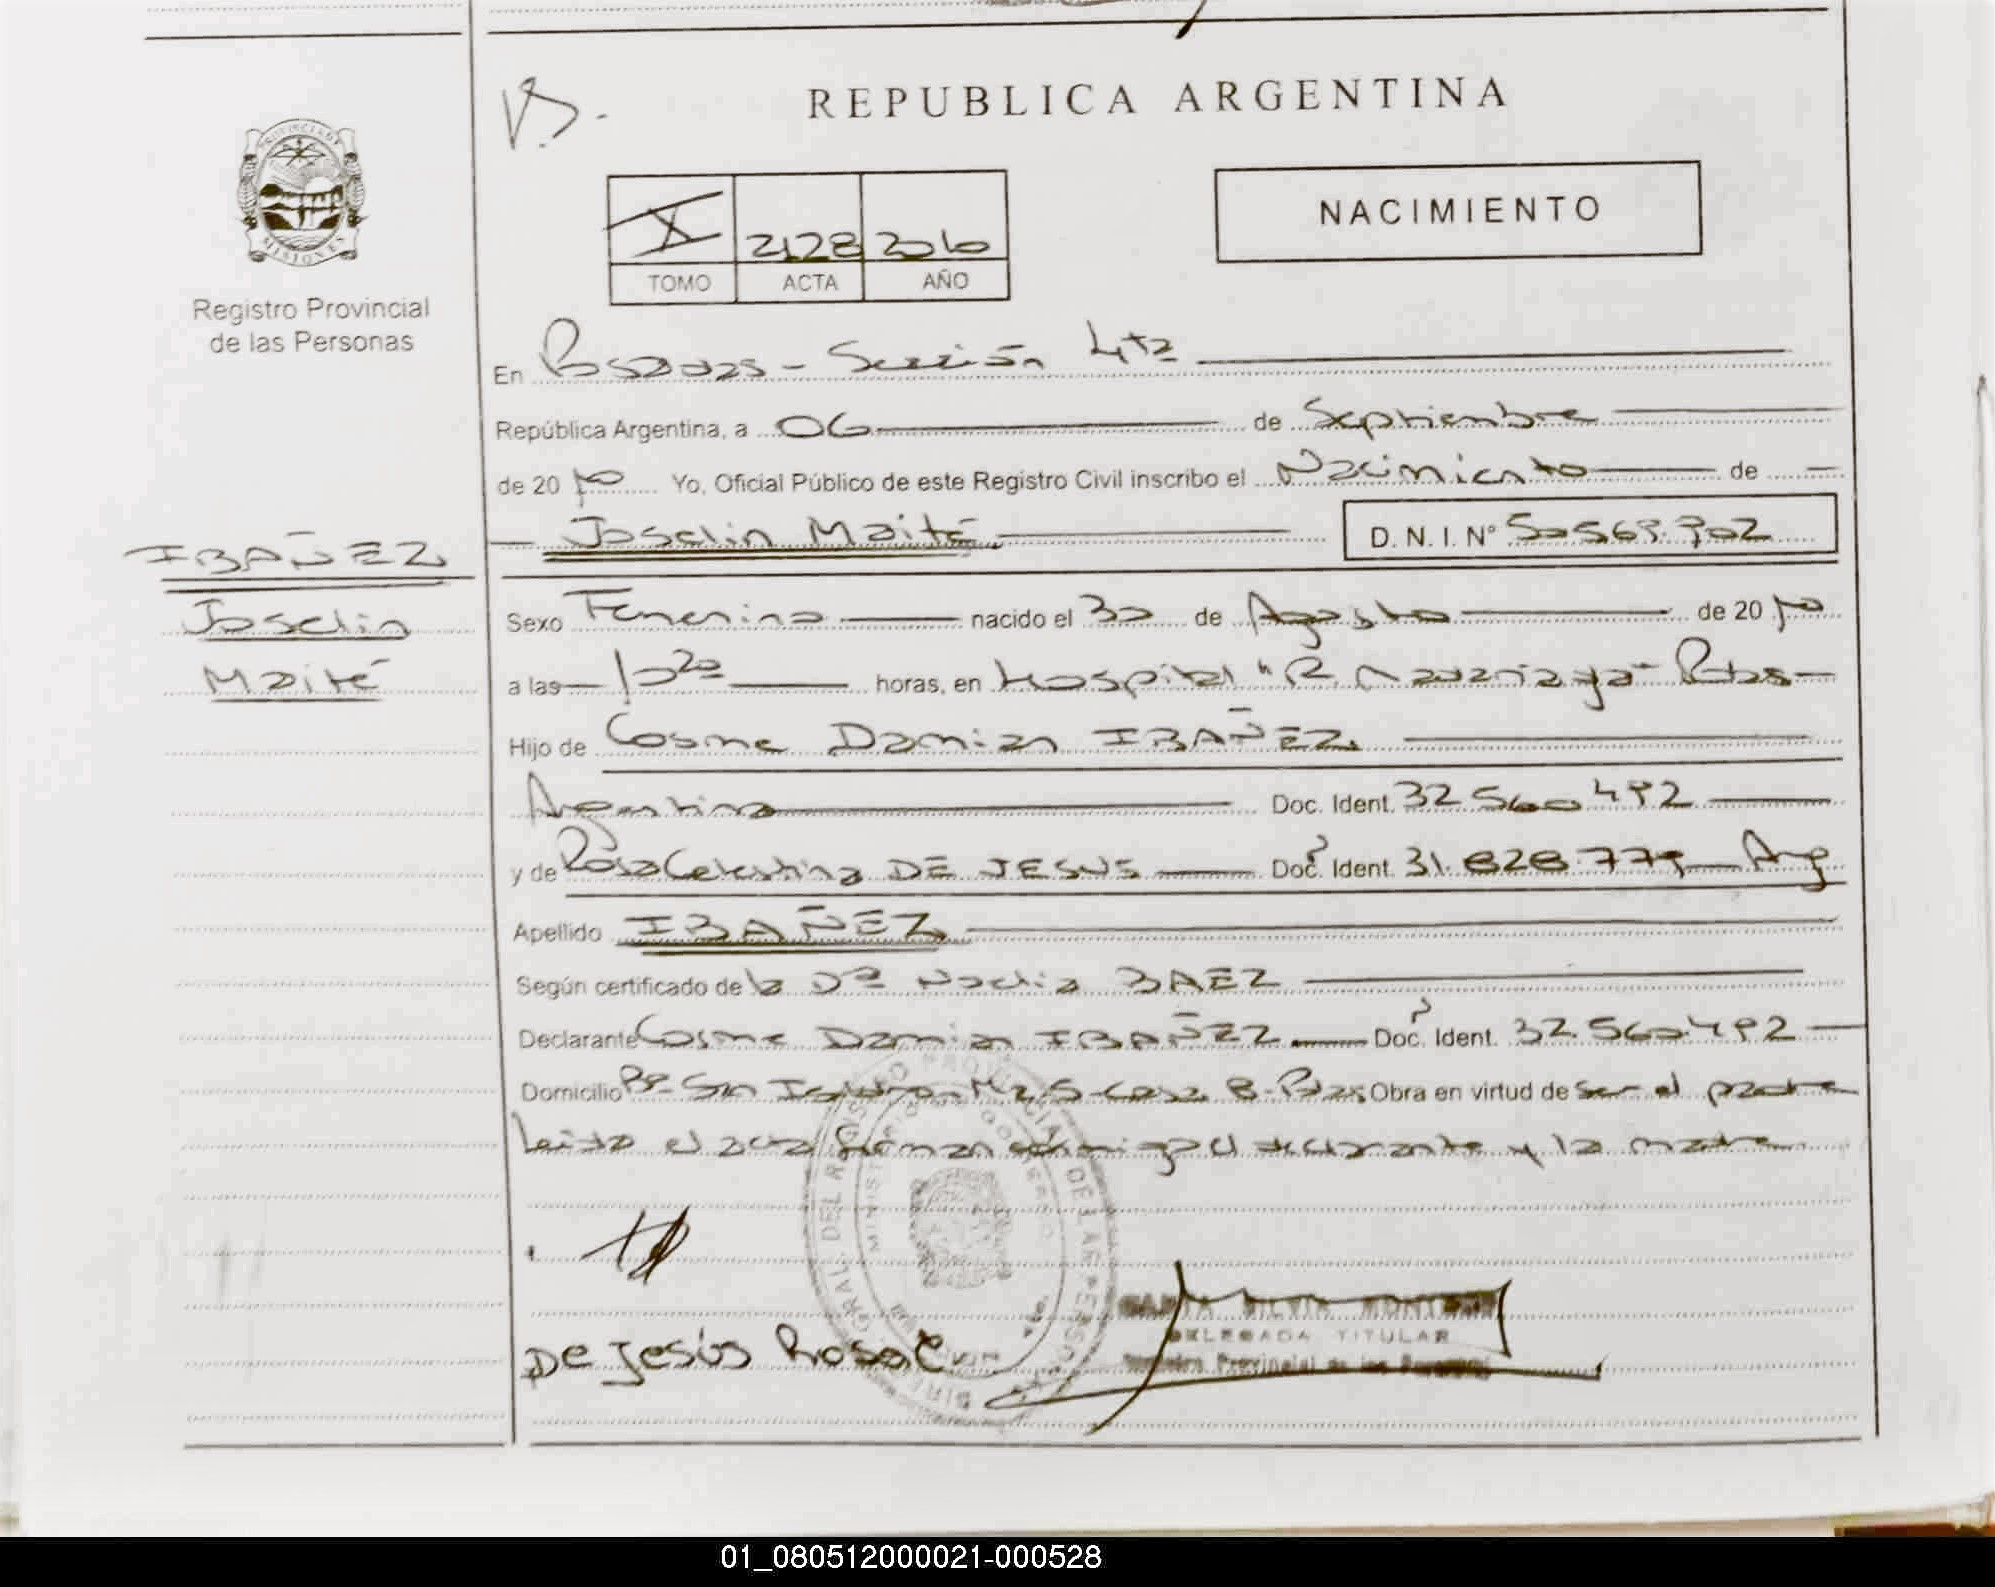 REPUBLICA ARGENTINA
PROVINCIA DE
MISIONES
Registro Provincial
de las Personas
NACIMIENTO
X 2128 2010
TOMO ACTA AÑO
En Posadas - Sección 4ta
República Argentina, a 06 de Septiembre
de 2010 Yo, Oficial Público de este Registro Civil inscribo el Nacimiento de
Joselin Maité D.N.I. Nº 50569.902
IBAÑEZ
Joselin
Maité
Sexo Femenino nacido el 30 de Agosto de 2010
a las 10 20 horas, en Hospital "R. Madariaga" Pdas
Hijo de Cosme Damian IBAÑEZ
Argentina Doc. Ident. 32 560 492
y de Rosa Celestina DE JESUS Doc. Ident. 31.828.779 Arg
Apellido IBAÑEZ
Según certificado de la Dra Noelia BAEZ
Declarante Cosme Damian IBAÑEZ Doc. Ident. 32.560.492
Domicilio Bº San Mz 5 casa 8 - Pdas Obra en virtud de ser el padre
Leida el acta firman conmigo el declarante y la madre
De Jesús Rosa C
SILVIA
DELEGADA TITULAR
Provincial de las Personas
01_080512000021-000528